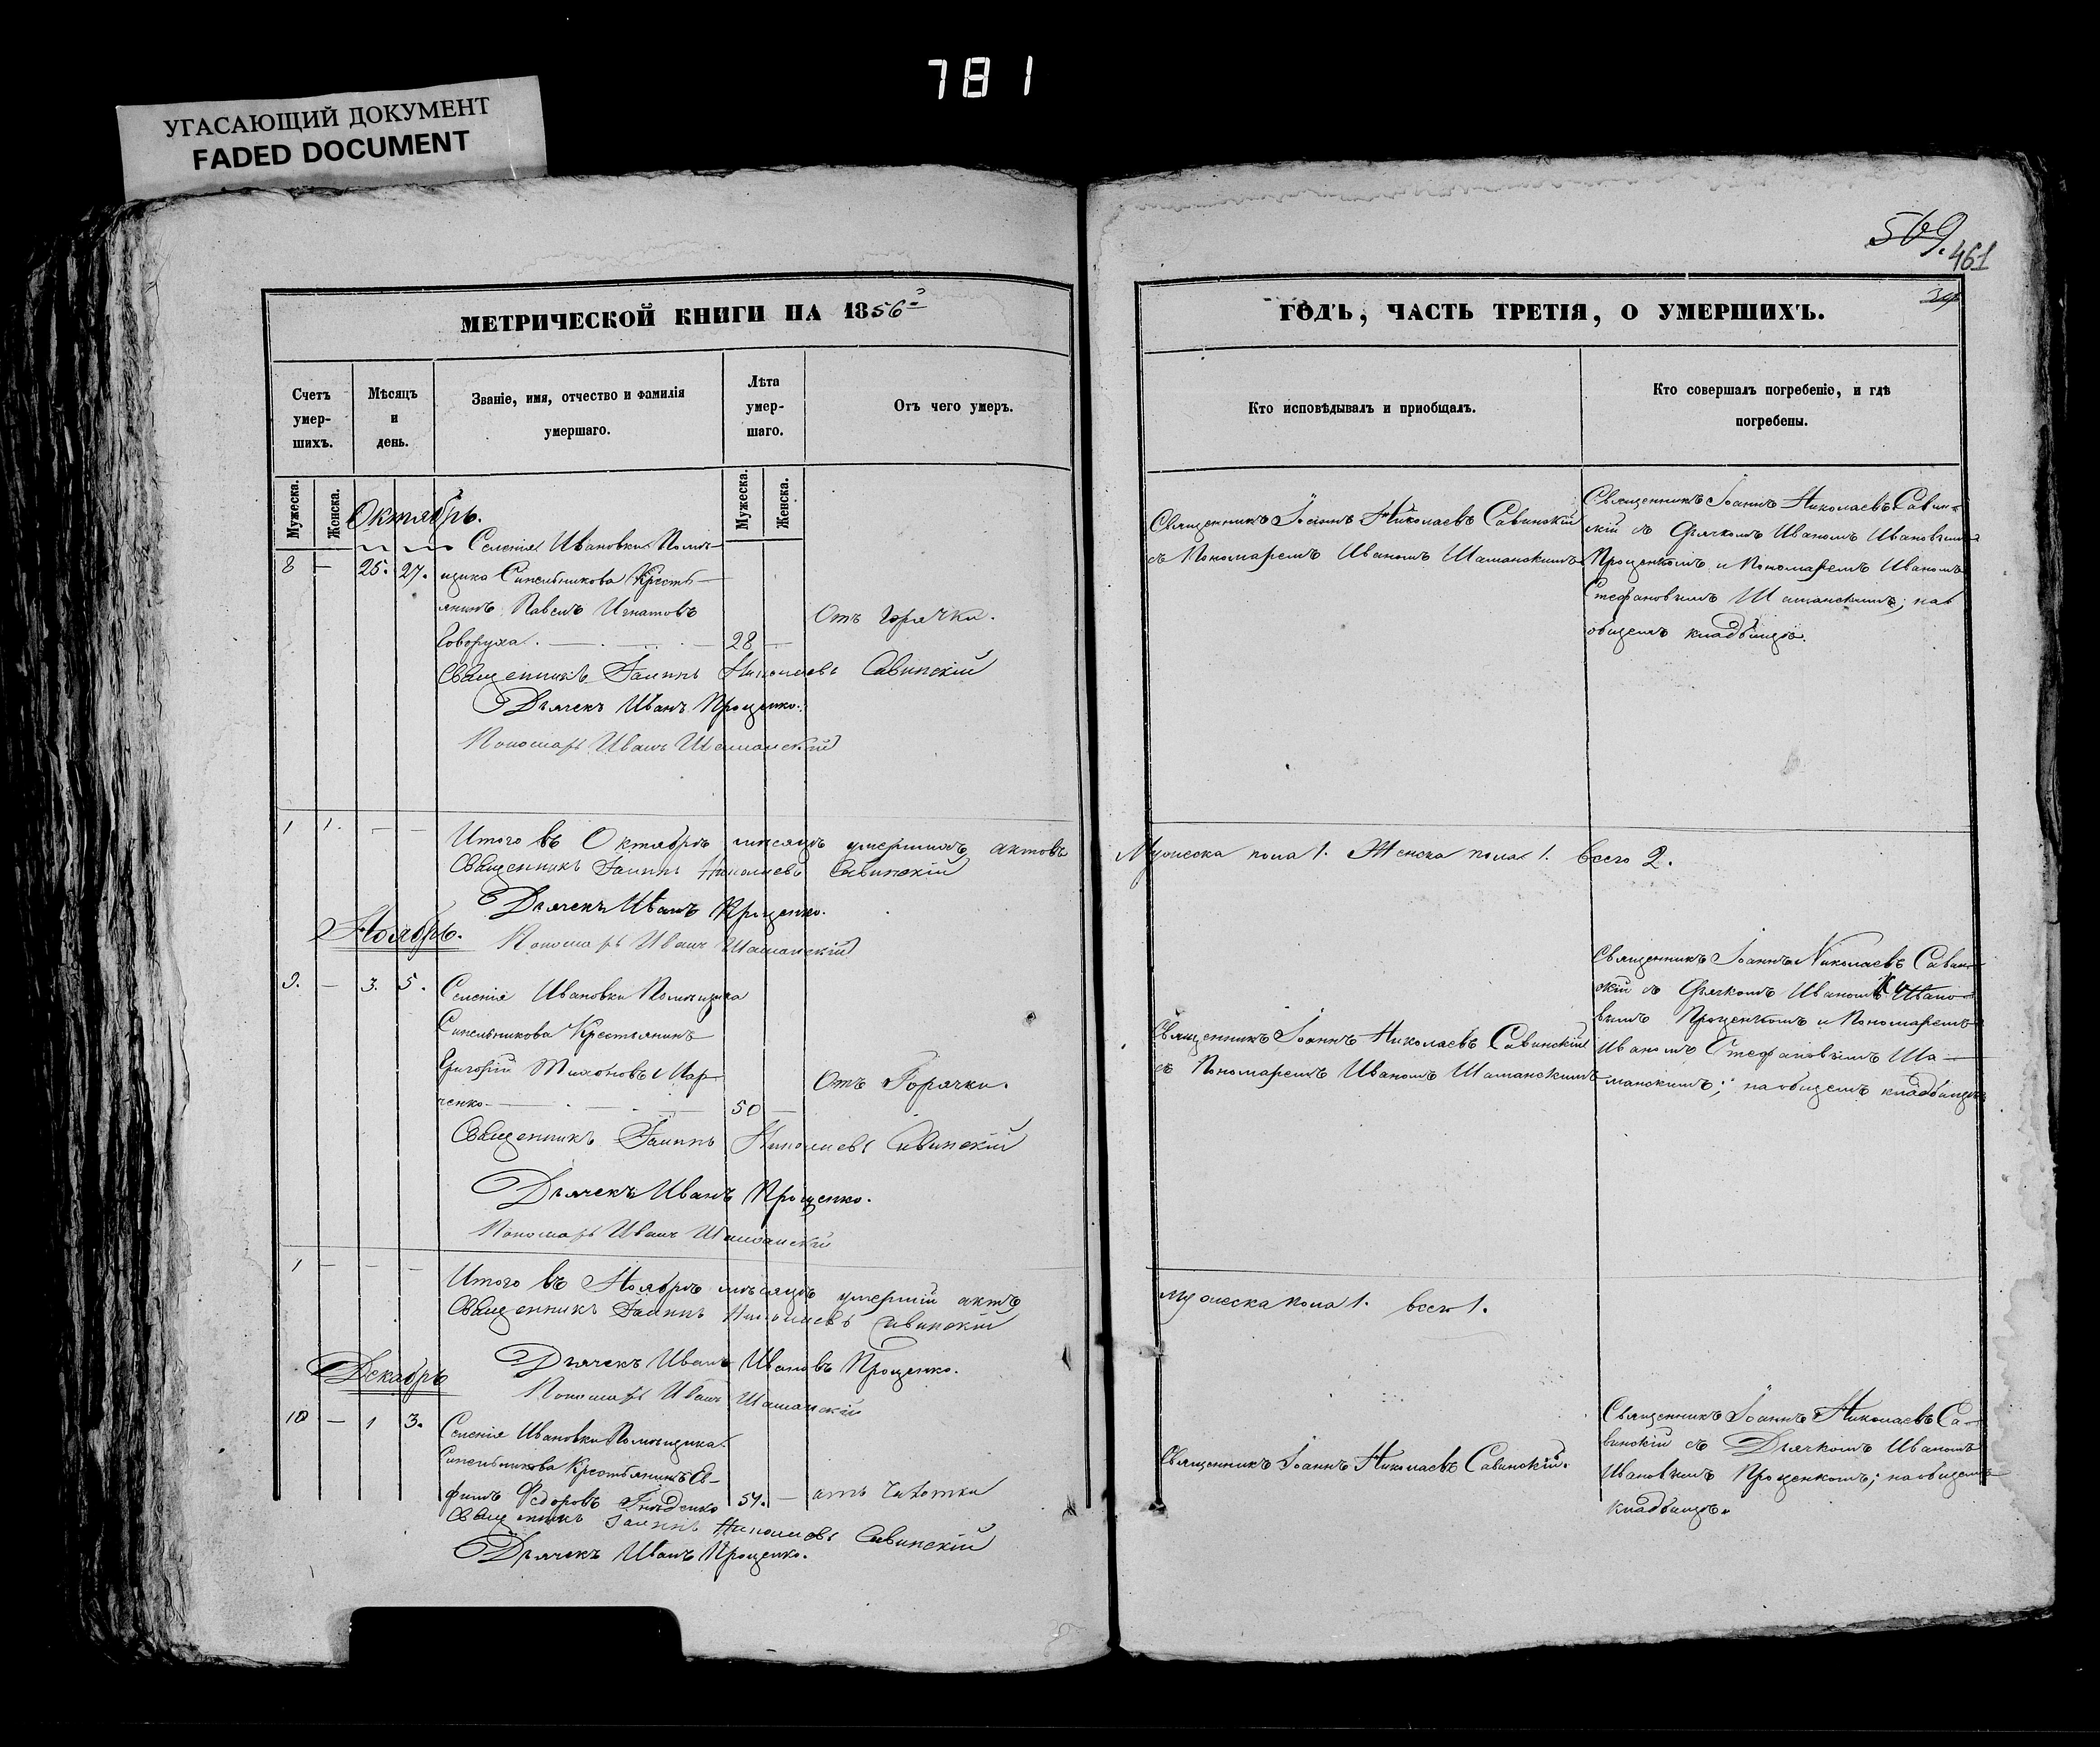 781
УГАСАЮЩИЙ ДОКУМЕНТ
FADED DOCUMENT
569. 461
МЕТРИЧЕСКОЙ КНИГИ НА 1856
Счетъ умер-шихъ.
Мѣсяцъ и день.
Званіе, имя, отчество и фамилія умершаго.
Лѣта умер-шаго.
Отъ чего умеръ.
Мужеска. Женска.
Мужеска Женска.
Октябрь.
Селенія Ивановки Помѣ-
8 — 25. 27. щика Синельникова Кресть-
янинъ Павелъ Игнатовъ
Отъ Горячки.
28 —
Священникъ Іоаннъ Николаевъ Савинскій
Дьячекъ Иванъ Проценко.
Пономарь Иванъ Шаманскій
1 1. — —
Итого въ Октябрѣ мѣсяцѣ умершихъ актовъ
Священникъ Іоаннъ Николаевъ Савинскій
Дьячекъ Иванъ Проценко.
Ноябрь.
Пономарь Иванъ Шаманскій
9. — 3. 5. Селенія Ивановки Помѣщика
Синельникова Крестьянинъ
Григорій Тихоновъ
Отъ Горячки.
ченко 50 —
Священникъ Іоаннъ Николаевъ Савинскій
Дьячекъ Иванъ Проценко.
Пономарь Иванъ Шаманскій
1 — — —
Итого въ Ноябрѣ мѣсяцѣ умершій актъ
Священникъ Іоаннъ Николаевъ Савинскій
Дьячекъ Иванъ Ивановъ Проценко.
Декабрь
Пономарь Иванъ Шаманскій
10 — 1 3. Селенія Ивановки Помѣщика
Синельникова Крестьянинъ Ев-
фимъ Федоровъ Гнѣденко — отъ Чахотки
Священникъ Іоаннъ Николаевъ Савинскій
Дьячекъ Иванъ Проценко.
ГОДЪ, ЧАСТЬ ТРЕТІЯ, О УМЕРШИХЪ.
Кто исповѣдывалъ и пріобщалъ.
Кто совершалъ погребеніе, и гдѣ
погребены.
Священникъ Іоаннъ Николаевъ Савинскій
съ Пономаремъ Иваномъ Шаманскимъ
Священникъ Іоаннъ Николаевъ Савин-
скій съ Дьячкомъ Иваномъ Ивановымъ
Проценкомъ и Пономаремъ Иваномъ
Стефановымъ Шаманскимъ; на
общемъ кладбищѣ.
Мужеска пола 1. Женска пола 1. Всего 2.
Священникъ Іоаннъ Николаевъ Савинскій
съ Пономаремъ Иваномъ Шаманскимъ
Священникъ Іоаннъ Николаевъ Савин-
скій съ Дьячкомъ Иваномъ Ивано-
вымъ Проценкомъ и Пономаремъ
Иваномъ Стефановымъ Ша-
манскимъ; на общемъ кладбищѣ
Мужеска пола 1. всего 1.
Священникъ Іоаннъ Николаевъ Савинскій.
Священникъ Іоаннъ Николаевъ Са-
винскій съ Дьячкомъ Иваномъ
Ивановымъ Проценкомъ; на общемъ
кладбищѣ.